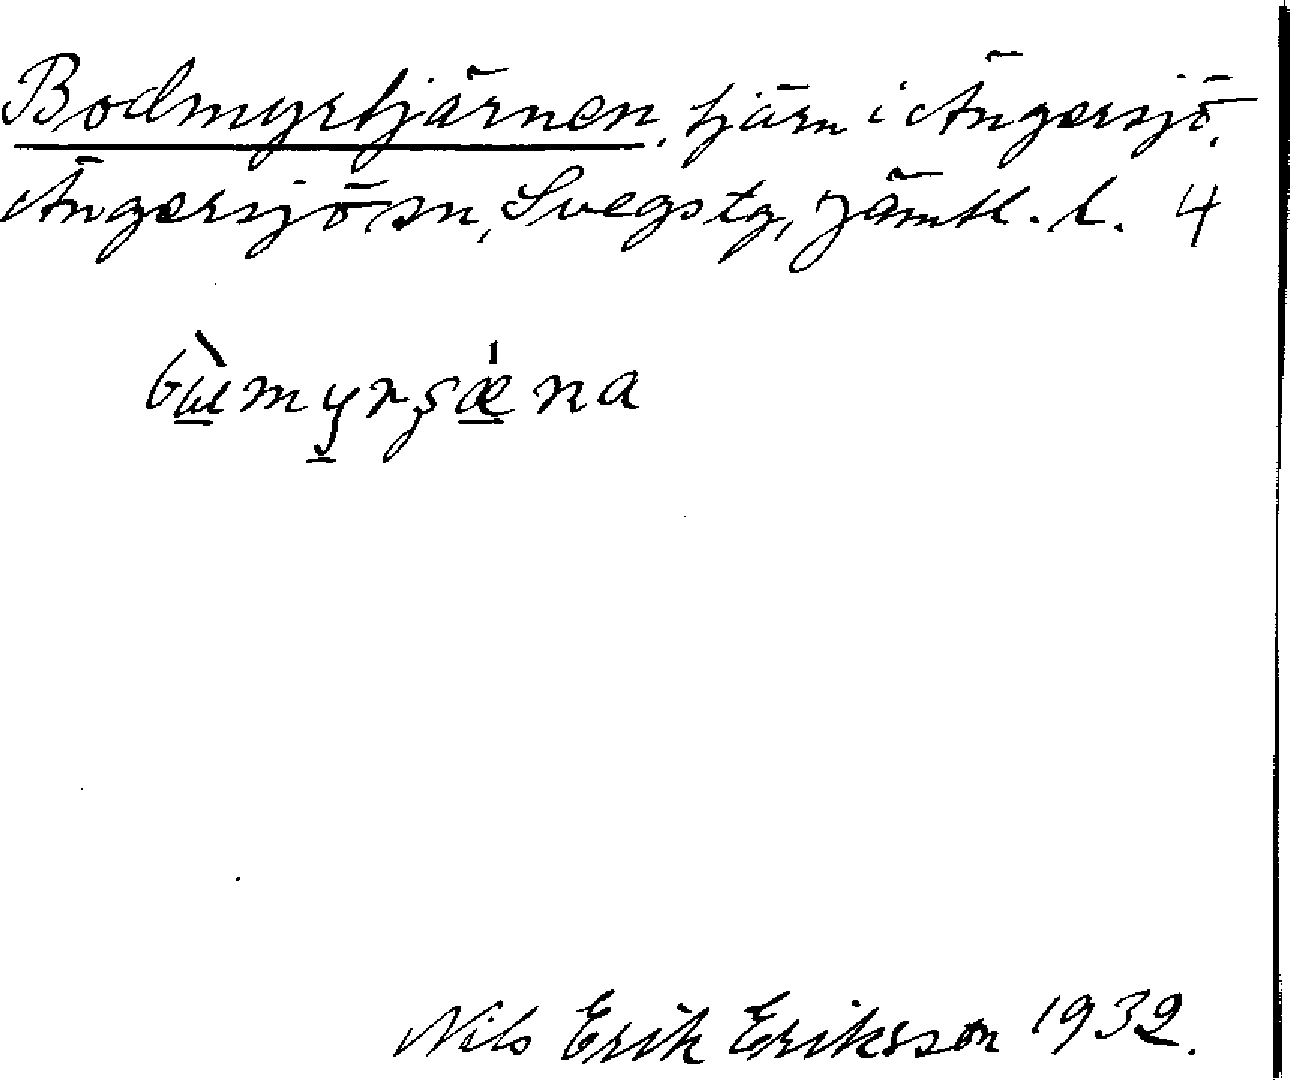 Bodmyrtjärnen, tjärn i Ängersjö,
Ängersjö sn, Svegs tg, Jämtl. l. 4
bù̲my̲rʂǽ̲na
Nils Erik Eriksson 1932.